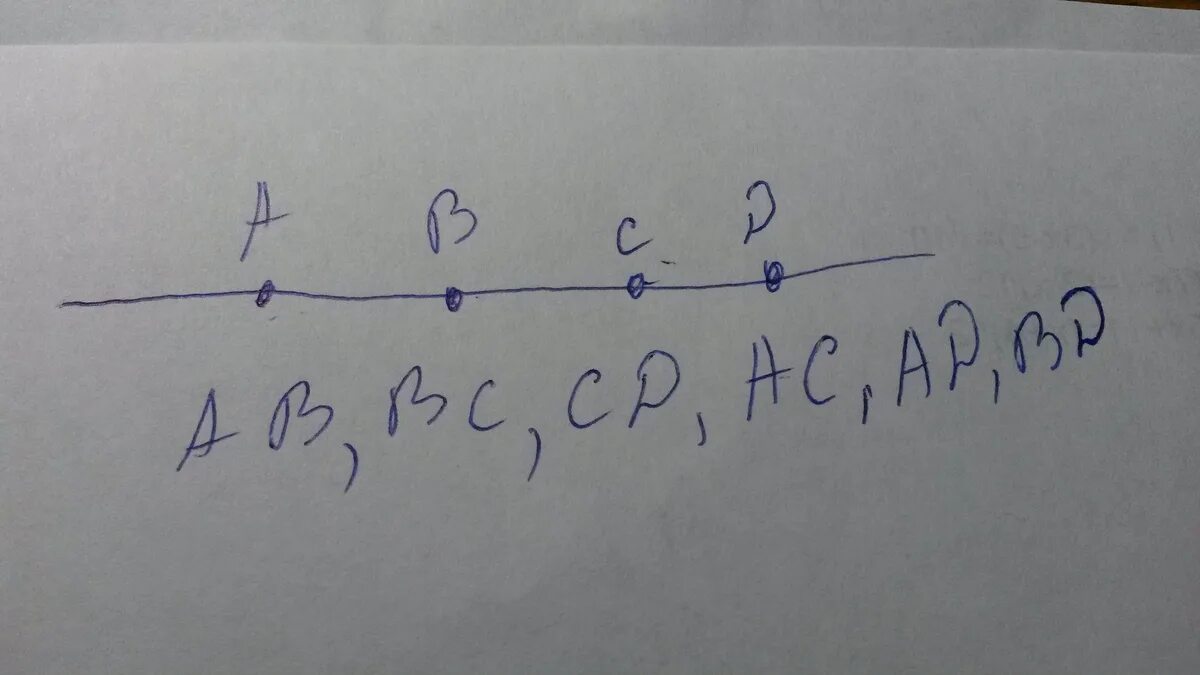 A B C D
AB, BC, CD, AC, AD, BD